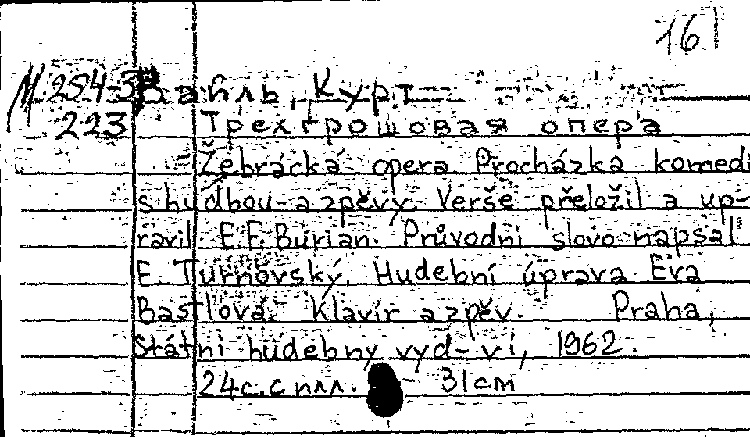 161
М 254 3 Вайль, Курт
223 Трехгрошовая опера
Žebrácká opera. Procházka komedi
s hudbou a zpěvy. Verše přeložil a up-
ravil E.F. Burian. Průvodní slovo napsal
E. Turnovský. Hudební úprava Eva
Bastlová. Klavír a zpěv. Praha,
Státní hudebny vyd-ví, 1962.
24с. с илл. 31cm